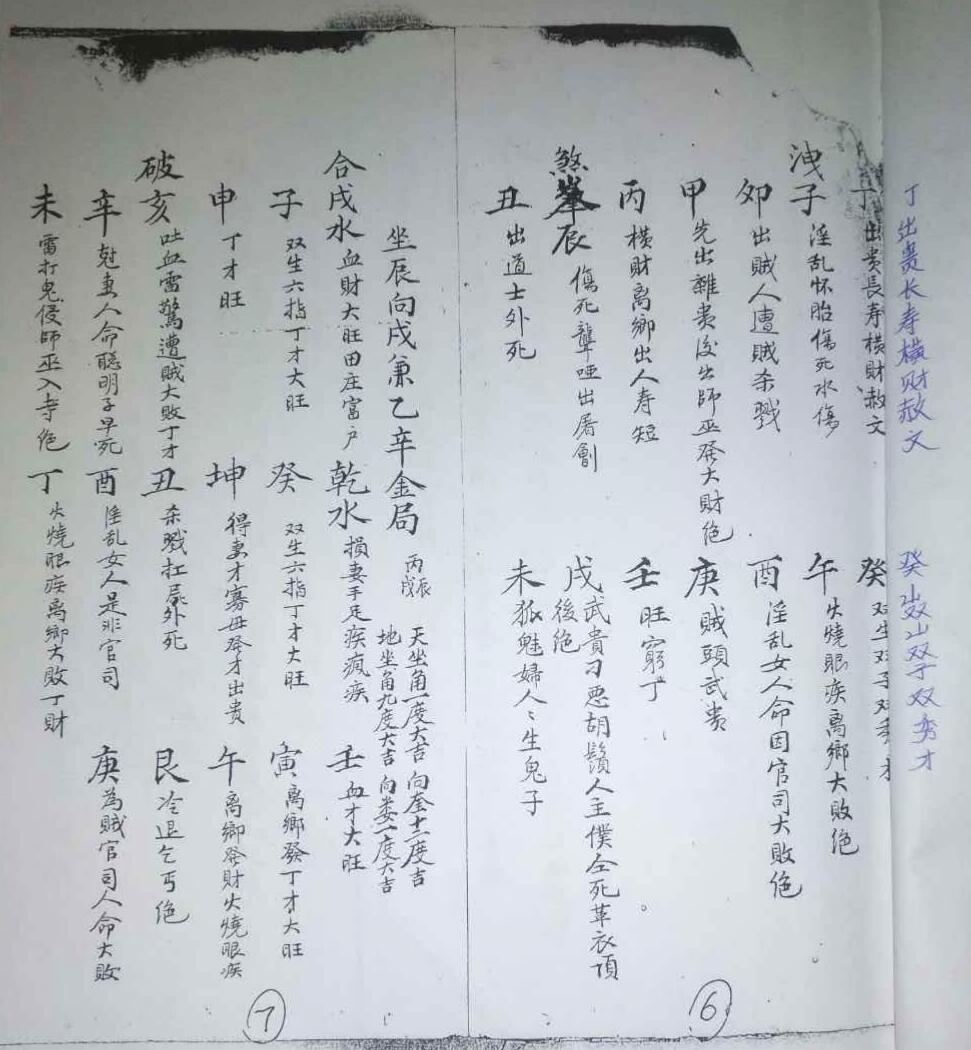 丁出贵长寿横财赦文
癸出双山双子双秀才
丁 出貴長寿横財赦文
癸 双生双子双秀才
洩子 淫乱怀胎傷死水傷
午 火燒眼疾离鄉大敗絕
卯 出賊人遭賊杀戮
酉 淫乱女人命因官司大敗绝
甲 先出雜貴後出師巫發大財絕
庚 賊頭武貴
丙 横財离鄉出人寿短
壬 旺窮丁
煞辰 傷死聾哑出屠劊
戌 武貴刁恶胡鬚人主僕仝死革衣頂
後绝
丑 出道士外死
未 狐魅婦人〻生鬼子
⑥
坐辰向戌兼乙辛金局 丙辰 丙戌 天坐角一度大吉 向奎十二度吉
地坐角九度大吉 向娄一度大吉
合戌水 血財大旺田庄富户
乾水 損妻手足疾瘋疾
壬 血才大旺
子 双生六指丁才大旺
癸 双生六指丁才大旺
寅 离鄉發丁才大旺
申 丁才旺
坤 得妻才寡母發才出貴
午 离鄉發財火燒眼疾
破亥 吐血雷驚遭賊大敗丁才
丑 杀戮扛屍外死
艮 冷退乞丐绝
辛 尅妻人命聪明子早死
酉 淫乱女人是非官司
庚 為賊官司人命大敗
未 雷打鬼侵師巫入寺绝
丁 火燒眼疾离鄉大敗丁財
⑦